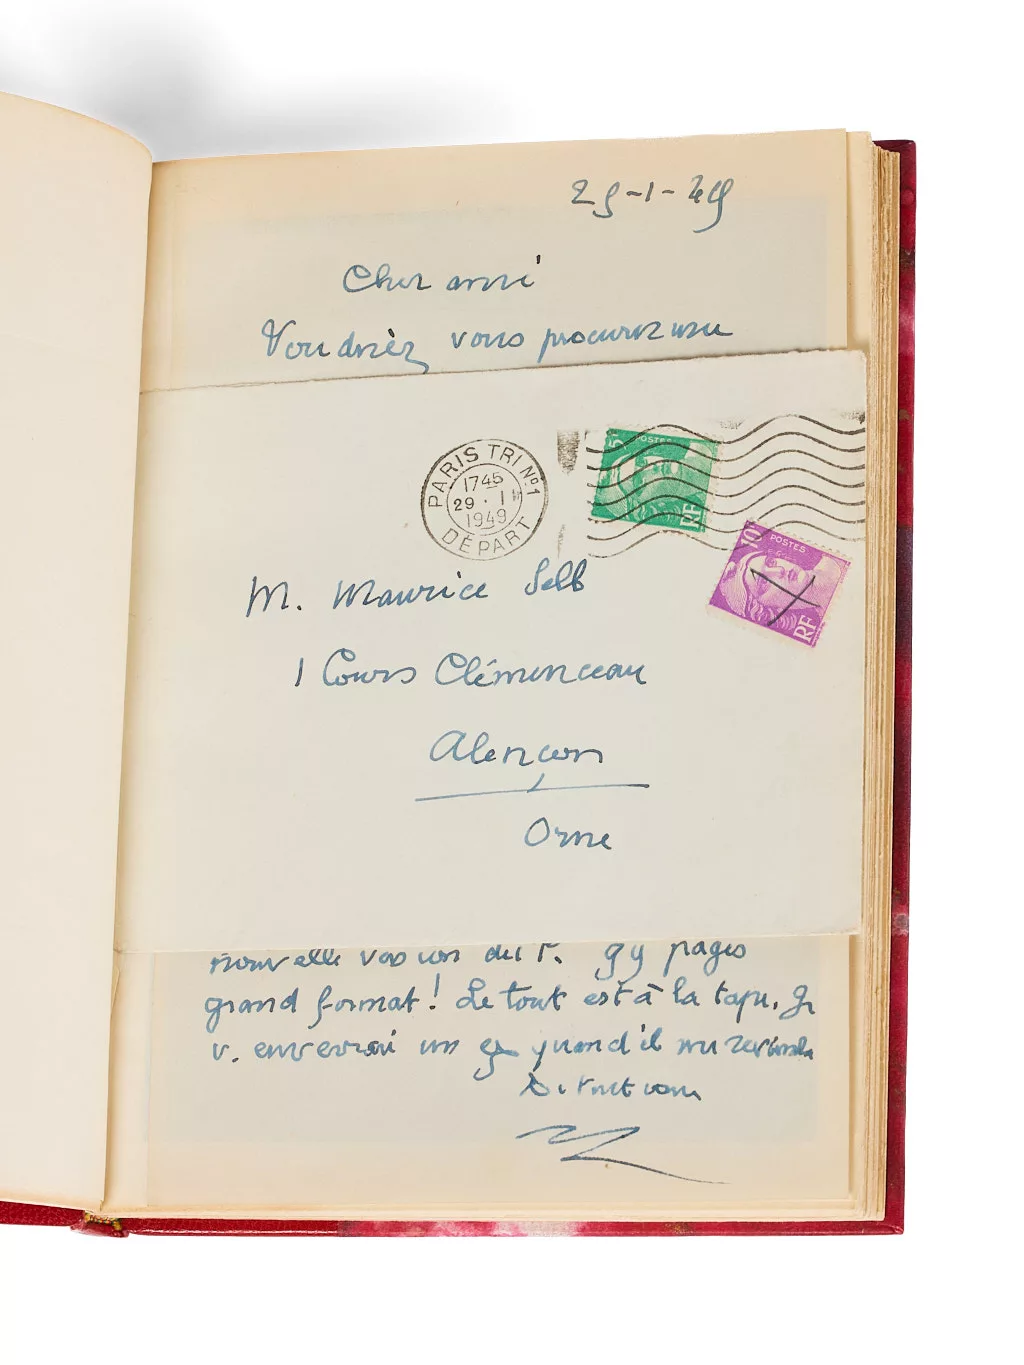 29-1-49
Cher ami
Voudriez vous procurer une
PARIS TRI Nº1
1745
29 · I
1949
DÉPART
5F
POSTES
RF
10F
POSTES
RF
M. Maurice Selb
1 Cours Clémenceau
Alençon
Orne
nouvelle version du P. 99 pages
grand format! Le tout est à la tape. Je
v. enverrai un ex quand il me reviendra
Bi vous